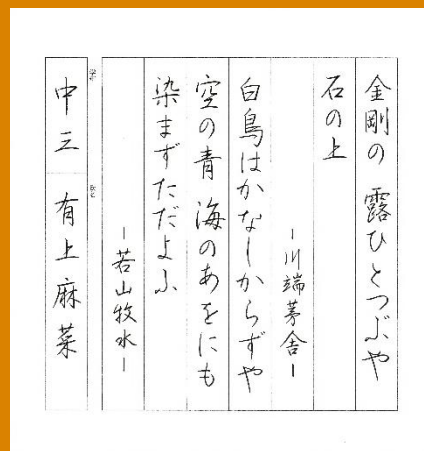 金剛の 露ひとつぶや
石の上
―川端茅舎―
白鳥はかなしからずや
空の青 海のあをにも
染まずただよふ
―若山牧水―
中三 有上麻菜